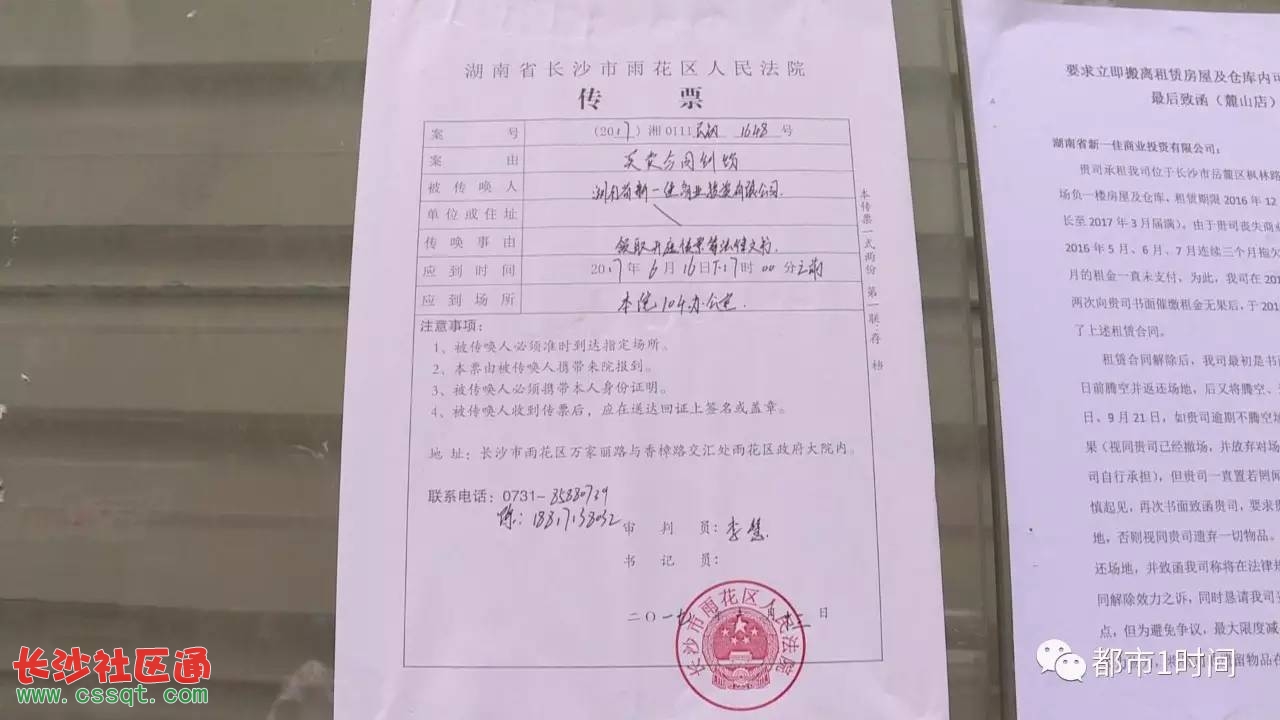 湖南省长沙市雨花区人民法院
传 票
案 号 (2017)湘0111民初 1648 号
案 由 买卖合同纠纷
被传唤人 湖南省新一佳商业投资有限公司.
单位或住址
传唤事由 领取开庭传票等法律文书.
应到时间 2017年6月16日下17时00分之前
应到场所 本院104办公室.
注意事项:
1、被传唤人必须准时到达指定场所。
2、本票由被传唤人携带来院报到。
3、被传唤人必须携带本人身份证明。
4、被传唤人收到传票后,应在送达回证上签名或盖章。
地 址:长沙市雨花区万家丽路与香樟路交汇处雨花区政府大院内。
联系电话:0731-
审 判 员:李慧
书 记 员:
二〇一七年 月 日
长沙市雨花区人民法院
本传票一式两份 第一联:存档
要求立即搬离租赁房屋及仓库内可
最后致函(麓山店)
湖南省新一佳商业投资有限公司:
贵司承租我司位于长沙市岳麓区枫林路
场负一楼房屋及仓库,租赁期限2016年12
长至2017年3月届满)。由于贵司丧失商业
2016年5月、6月、7月连续三个月拖欠
月的租金一直未支付,为此,我司在201
两次向贵司书面催缴租金无果后,于201
了上述租赁合同。
租赁合同解除后,我司最初是书面
日前腾空并返还场地,后又将腾空、
日、9月21日,如贵司逾期不腾空场
果(视同贵司已经撤场,并放弃对场
司自行承担),但贵司一直置若罔闻
慎起见,再次书面致函贵司,要求贵
地,否则视同贵司遗弃一切物品。
还场地,并致函我司称将在法律规
同解除效力之诉,同时恳请我司
点,但为避免争议,最大限度减
留物品在
长沙社区通
www.cssqt.com
都市1时间